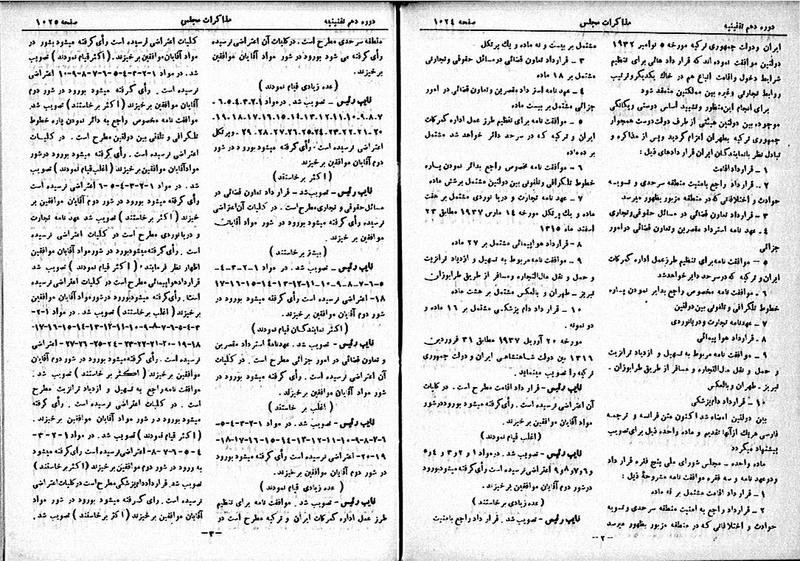 دوره دهم تقنینیه
مذاکرات مجلس
صفحه ۱۰۲۴
ایران ودولت جمهوری ترکیه مورخه ۵ نوامبر ۱۹۳۲
دولتین موافقت نموده‌اند که قرار داد هائی برای تنظیم
شرایط دخول واقامت اتباع هم در خاک یکدیگر وترتیب
روابط تجارتی وغیره بین مملکتین منعقد شود
برای انجام این منظور وتشیید اساس دوستی ویگانگی
موجود، بین دولتین هیئتی از طرف دولت دوست همجوار
جمهوری ترکیه بطهران اعزام گردید وپس از مذاکره و
تبادل نظر با نمایندگان ایران قرار دادهای ذیل :
۱ - قرارداد اقامت
۲ - قرارداد راجع بامنیت منطقه سرحدی و تسویه
حوادث و اختلافاتی که در منطقه مزبور بظهور میرسد
۳ - قرارداد تعاون قضائی در مسائل حقوقی وتجاری
۴ - عهد نامه استرداد مقصرین وتعاون قضائی درامور
جزائی
۵ - موافقت نامه برای تنظیم طرز عمل اداره گمرکات
ایران و ترکیه که در سرحد دایر خواهد شد
۶ - موافقت نامه مخصوص راجع بدایر نمودن پاره
خطوط تلگرافی و تلفونی بین دولتین
۷ - عهدنامه تجارت ودریانوردی
۸ - قرارداد هوا پیمائی
۹ - موافقت نامه مربوط به تسهیل و ازدیاد ترانزیت
و حمل و نقل مال التجاره و مسافر از طریق طرابوزان .
تبریز - طهران وبالعکس
۱۰ - قرارداد دام پزشکی
بین دولتین امضاء شد اکنون متن فرانسه و ترجمه
فارسی هریک از آنها تقدیم و ماده واحده ذیل برای تصویب
پیشنهاد میگردد
ماده واحده - مجلس شورای ملی پنج فقره قرار داد
ودو عهد نامه و سه فقره موافقت نامه مشروحهٔ ذیل :
۱ - قرار داد اقامت مشتمل بر نه ماده
۲ - قرار داد راجع به امنیت منطقه سرحدی وتسویه
حوادث و اختلافاتی که در منطقه مزبور بظهور میرسد
مشتمل بر بیست و نه ماده و یک پرتکل
۳ - قرارداد تعاون قضائی در مسائل حقوقی وتجارتی
مشتمل بر ۱۸ ماده
۴ - عهد نامه استرداد مقصرین و تعاون قضائی در امور
جزائی مشتمل بر بیست ماده
۵ - موافقت نامه برای تنظیم طرز عمل اداره گمرکات
ایران و ترکیه که در سر حد دائر خواهد شد مشتمل
بر ده ماده
۶ - موافقت نامه مخصوص راجع بدائر نمودن پاره
خطوط تلگرافی وتلفونی بین دولتین مشتمل بر شش ماده
۷ - عهد نامه تجارت و دریا نوردی مشتمل بر هفت
ماده و یک پرتکل مورخه ۱۴ مارس ۱۹۳۷ مطابق ۲۳
اسفند ماه ۱۳۱۵
۸ - قرارداد هواپیمائی مشتمل بر ۲۷ ماده
۹ - موافقت نامه مربوط به تسهیل و ازدیاد ترانزیت
و حمل و نقل مال‌التجاره و مسافر از طریق طرابوزان
تبریز - طهران و بالعکس مشتمل بر هشت ماده
۱۰ - قرار داد دام پزشکی مشتمل بر ۱۶ ماده و
دو نمونه .
مورخه ۲۰ آوریل ۱۹۳۷ مطابق ۳۱ فروردین
۱۳۱۶ بین دولت شاهنشاهی ایران و دولت جمهوری
ترکیه را تصویب مینماید.
نایب رئیس - قرار داد اقامت مطرح است . در کلیات
آن اعتراضی نرسیده است رأی گرفته میشود بورود در شور
مواد آقایان موافقین بر خیزند.
( اغلب قیام نمودند )
نایب رئیس - تصویب شد. در مواد ۱ و ۲ و ۳ و ۴ و ۵
و ۶ و ۷ و ۸ و ۹ اعتراضی نرسیده است رأی گرفته میشود بورود
در شور دوم آقایان موافقین بر خیزند .
( عده زیادی برخاستند )
نایب رئیس - تصویب شد . قرار داد راجع بامنیت
-۲-
دوره دهم تقنینیه
مذاکرات مجلس
صفحه ۱۰۲۵
منطقه سرحدی مطرح است . در کلیات آن اعتراضی نرسیده
رأی گرفته می شود بورود در شور مواد آقایان موافقین
برخیزند .
( عده زیادی قیام نمودند )
نایب رئیس - تصویب شد. در مواد ۱-۲-۳-۴-۵-۶-
۷-۸-۹-۱۰-۱۱-۱۲-۱۳-۱۴-۱۵-۱۶-۱۷-۱۸-۱۹-
۲۰-۲۱-۲۲-۲۳-۲۴-۲۵-۲۶-۲۷-۲۸-۲۹- وپرتکل
اعتراضی نرسیده است . رأی گرفته میشود بورود در شور
دوم آقایان موافقین برخیزند
( اکثر برخاستند )
نایب رئیس - تصویب شد . قرار داد تعاون قضائی در
مسائل حقوقی و تجاری مطرح است . در کلیات آن اعتراضی
نرسیده رأی گرفته میشود بورود در شور مواد آقایان
موافقین بر خیزند.
( بیشتر برخاستند )
نایب رئیس - تصویب شد . در مواد ۱-۲-۳-۴-
۵-۶-۷-۸-۹-۱۰-۱۱-۱۲-۱۳-۱۴-۱۵-۱۶-۱۷
۱۸- اعتراضی نرسیده است رأی گرفته میشود بورود در
شور دوم آقایان موافقین بر خیزند.
( اکثر نمایندگان قیام نمودند )
نایب رئیس - تصویب شد. عهدنامهٔ استرداد مقصرین
و تعاون قضائی در امور جزائی مطرح است . در کلیات
آن اعتراضی نرسیده است . رأی گرفته میشود بورود در
شور مواد آقایان موافقین بر خیزند .
( اغلب بر خاستند )
نایب رئیس - تصویب شد . در مواد ۱-۲-۳-۴-۵-
۶-۷-۸-۹-۱۰-۱۱-۱۲-۱۳-۱۴-۱۵-۱۶-۱۷-۱۸-
۱۹-۲۰ اعتراضی نرسیده است رأی گرفته میشود بورود
در شور دوم آقایان موافقین بر خیزند .
( عده زیادی قیام نمودند )
نایب رئیس - تصویب شد . موافقت نامه برای تنظیم
طرز عمل اداره گمرکات ایران و ترکیه مطرح است در
کلیات اعتراضی نرسیده است رأی گرفته میشود بشور در
مواد آقایان موافقین بر خیزند. (اکثر قیام نمودند) تصویب
شد. در مواد ۱-۲-۳-۴-۵-۶-۷-۸-۹-۱۰ اعتراضی
نرسیده است . رأی گرفته میشود بورود در شور دوم
آقایان موافقین برخیزند (اکثر برخاستند) تصویب شد .
موافقت نامه مخصوص راجع به دایر نمودن پاره خطوط
تلگرافی و تلفنی بین دولتین مطرح است . در کلیات
اعتراضی نرسیده است . رأی گرفته میشود بورود در شور
مواد آقایان موافقین برخیزند (اغلب قیام نمودند) تصویب
شد . در مواد ۱-۲-۳-۴-۵-۶ اعتراضی نرسیده است
رأی گرفته میشود بورود در شور دوم آقایان موافقین بر
خیزند ( اکثر بر خاستند ) تصویب شد عهد نامهٔ تجارت
و دریانوردی مطرح است در کلیات اعتراضی نرسیده
است . رأی گرفته میشود بورود در شور مواد
( اکثر قیام نمودند ) تصویب شد .
قرارداد هواپیمائی مطرح است در کلیات اعتراضی نرسیده
است . رأی گرفته میشود بورود در شور مواد آقایان موافقین
برخیزند ( اغلب بر خاستند ) تصویب شد . در مواد ۱-۲-
۳-۴-۵-۶-۷-۸-۹-۱۰-۱۱-۱۲-۱۳-۱۴-۱۵-۱۶-۱۷-
۱۸-۱۹-۲۰-۲۱-۲۲-۲۳-۲۴-۲۵-۲۶-۲۷- اعتراضی
نرسیده است . رأی گرفته میشود بورود در شور دوم آقایان
موافقین بر خیزند ( اکثر بر خاستند ) تصویب شد .
موافقت نامه راجع به تسهیل و ازدیاد ترانزیت مطرح
است . در کلیات اعتراضی نرسیده است . رأی گرفته
میشود بورود در شور مواد آقایان موافقین بر خیزند .
( اکثر قیام نمودند ) تصویب شد . در مواد ۱-۲-۳-
۴-۵-۶-۷-۸- اعتراضی نرسیده است رأی گرفته میشود
به ورود در شور دوم آقایان موافقین بر خیزند (اکثر برخاستند)
تصویب شد. قرارداد دام پزشکی مطرح است در کلیات اعتراضی
نرسیده است . رأی گرفته میشود بورود در شور مواد
آقایان موافقین بر خیزند ( اکثر بر خاستند ) تصویب شد .
-۳-